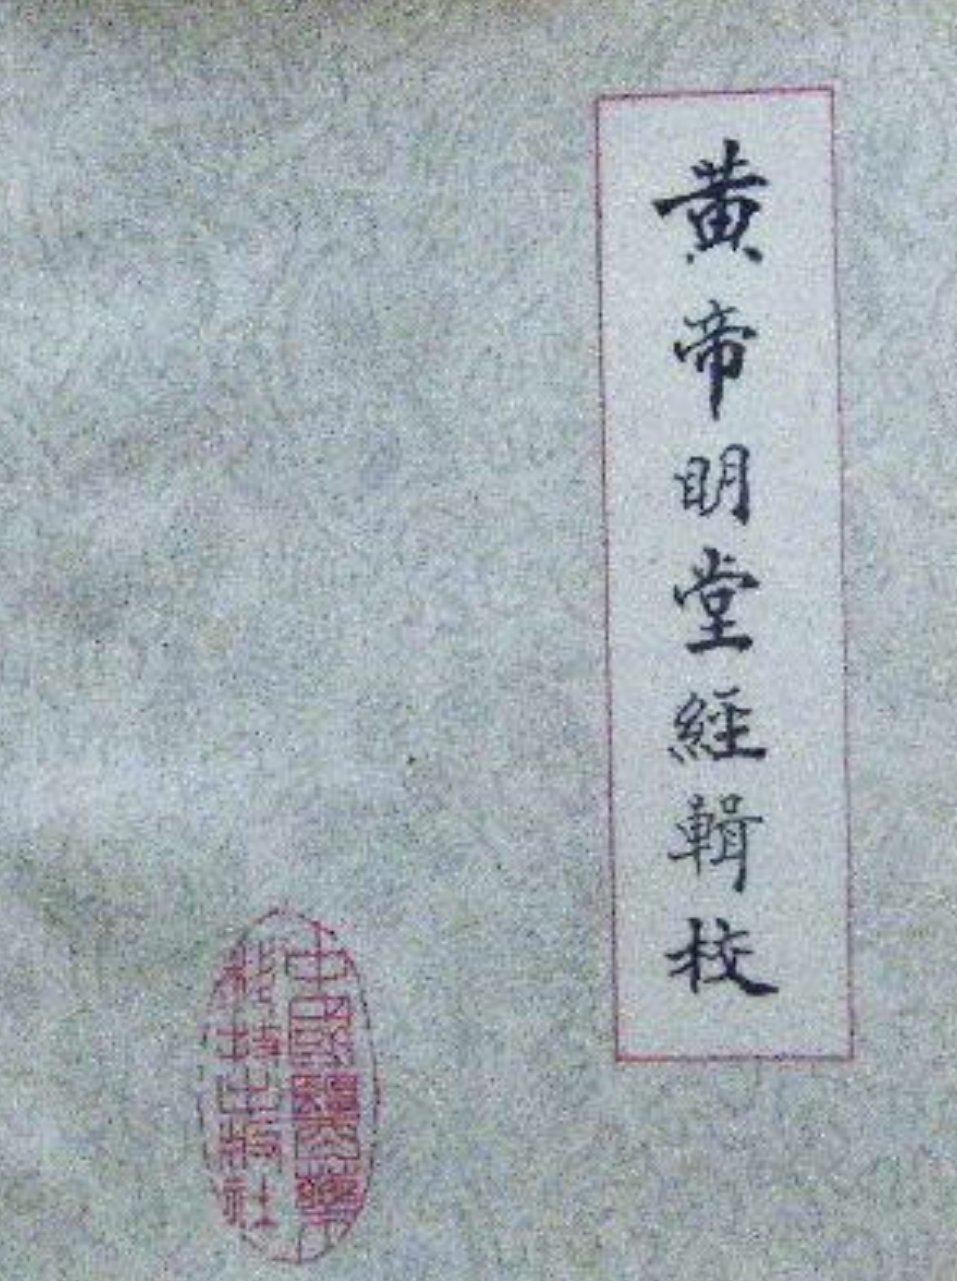 黄帝明堂經輯校
中國醫藥
科技出版社